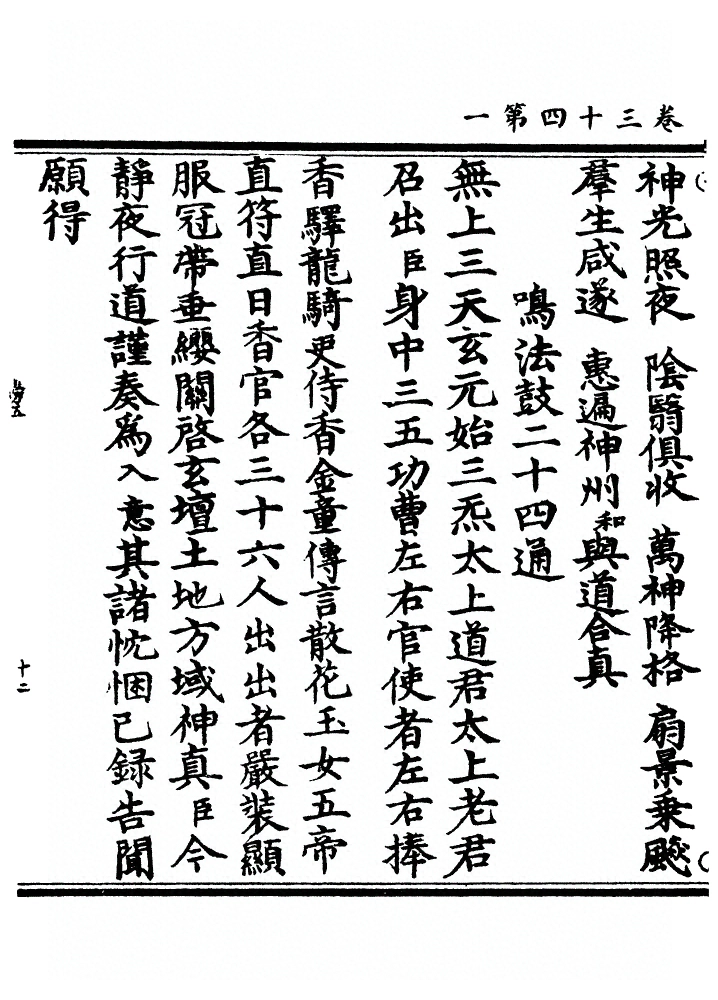 卷三十四第一
神光照夜 陰翳俱收 萬神降格 扇景乗飈
羣生咸遂 惠遍神州和與道合真
鳴法鼓二十四通
無上三天玄元始三炁太上道君太上老君
召出臣身中三五功曹左右官使者左右捧
香驛龍騎吏侍香金童傳言散花玉女五帝
直符直日香官各三十六人出出者嚴装顯
服冠帶垂纓關啓玄壇土地方域神真臣今
靜夜行道謹奏為入意其諸忱悃已録告聞
願得
十二